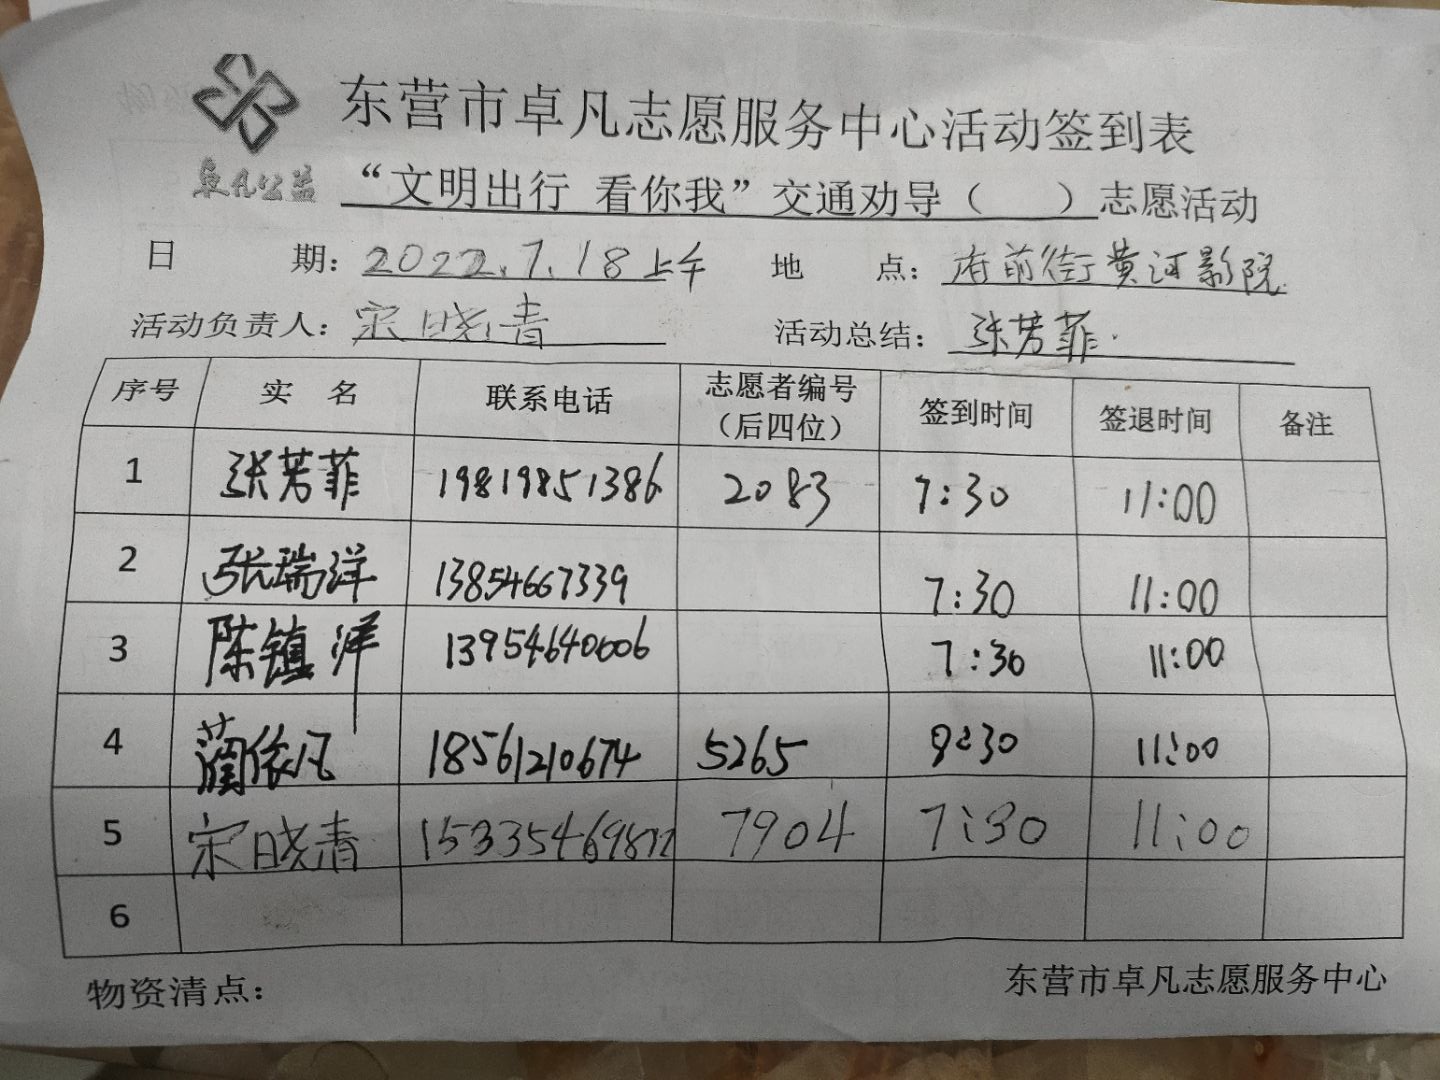 东营市卓凡志愿服务中心活动签到表
卓凡公益
“文明出行 看你我”交通劝导（ ）志愿活动
日 期：2022.7.18上午 地 点：府前街黄河影院
活动负责人：宋晓青 活动总结：张芳菲.
序号 实 名 联系电话 志愿者编号（后四位） 签到时间 签退时间 备注
1 张芳菲 19819851386 2083 7:30 11:00
2 张瑞洋 13854667339 7:30 11:00
3 陈镇洋 13954640006 7:30 11:00
4 蔺依凡 18561210674 5265 9:30 11:00
5 宋晓青 7904 7:30 11:00
6
物资清点： 东营市卓凡志愿服务中心